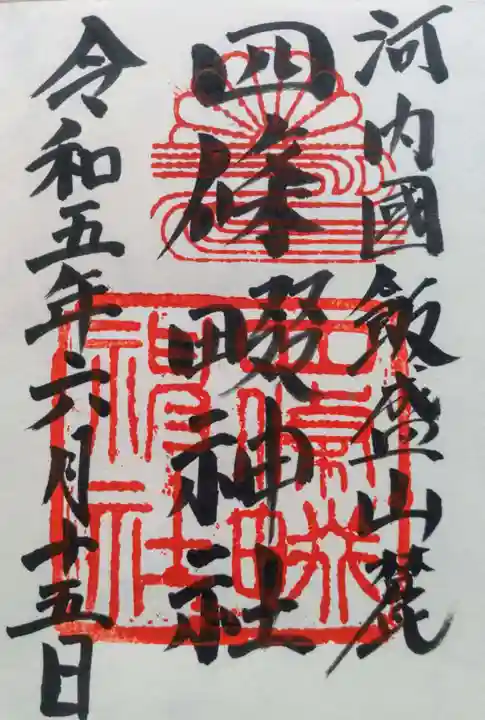 河内國飯盛山麓
四條畷神社
令和五年六月十五日